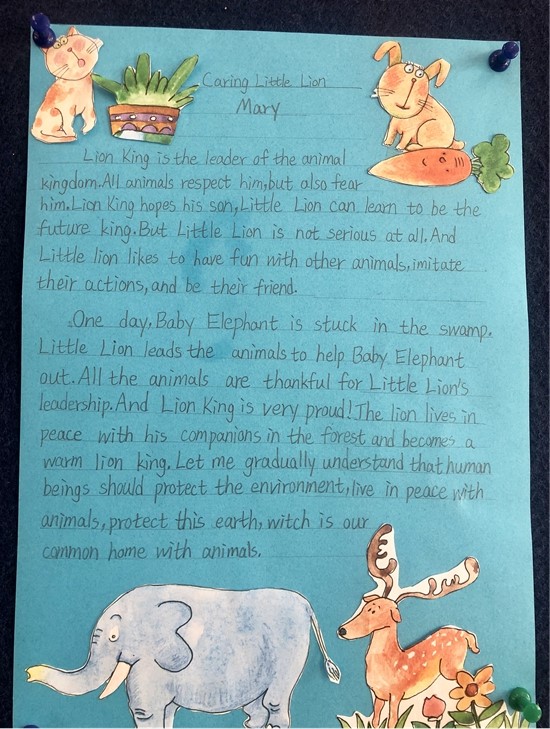 Caring Little Lion
Mary
Lion King is the leader of the animal
kingdom.All animals respect him,but also fear
him.Lion King hopes his son,Little Lion can learn to be the
future king.But Little Lion is not serious at all.And
Little lion likes to have fun with other animals,imitate
their actions,and be their friend.
One day,Baby Elephant is stuck in the swamp.
Little Lion leads the animals to help Baby Elephant
out.All the animals are thankful for Little Lion's
leadership.And Lion King is very proud!The lion lives in
peace with his companions in the forest and becomes a
warm lion king.Let me gradually understand that human
beings should protect the environment,live in peace with
animals,protect this earth,witch is our
common home with animals.